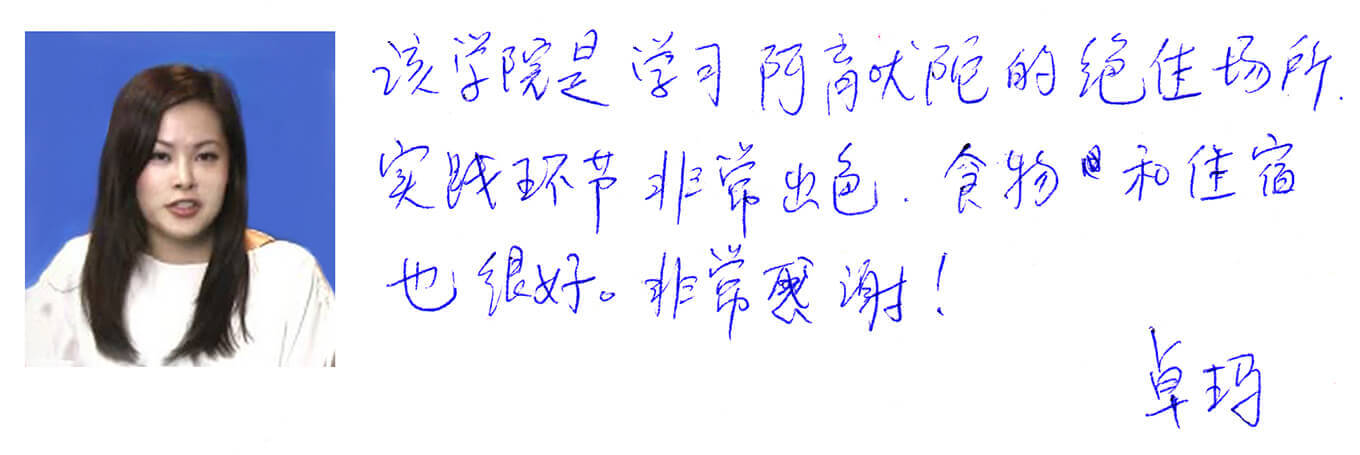 该学院是学习阿育吠陀的绝佳场所.
实践环节非常出色.食物和住宿
也很好。非常感谢!
卓玛